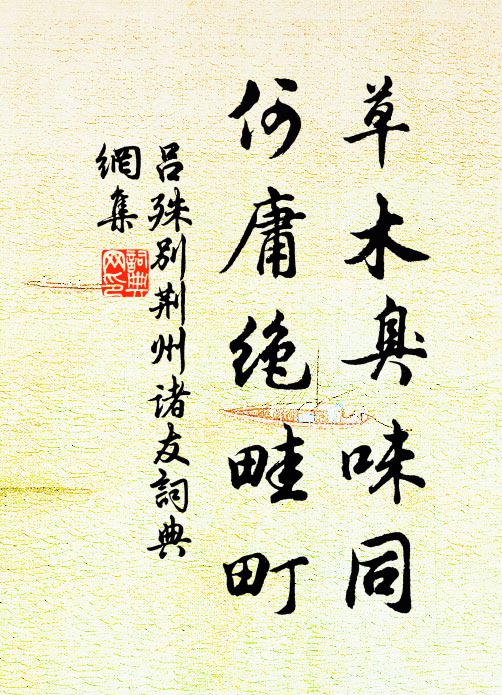 草木臭味同
何庸绝畦町
吕殊别荆州诸友詞典
網集
詞典
网印